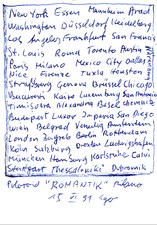 New York Essen Mannheim Arad
Washington Düsseldorf Heidelberg
Los Angeles Frankfurt San Francisco
St. Louis Roma Toronto Austin
Paris Milano Mexico City Dallas
Nice Firenze Tuxla Houston
Straßburg Genova Brüssel Chicago
Bucuresti Kairo Luxemburg San Antonio
Timisoara Alexandria Basel
Budapest Luxor Imperia San Diego
Wien Belgrad Venedig Amsterdam
London Zagreb Berlin Rotterdam
Köln Salzburg Dresden Ludwigshafen
München Hamburg Karlsruhe Calvi
Stuttgart Thessaloniki Dubrovnik
"ROMANTIK" Milano
15 VI 91